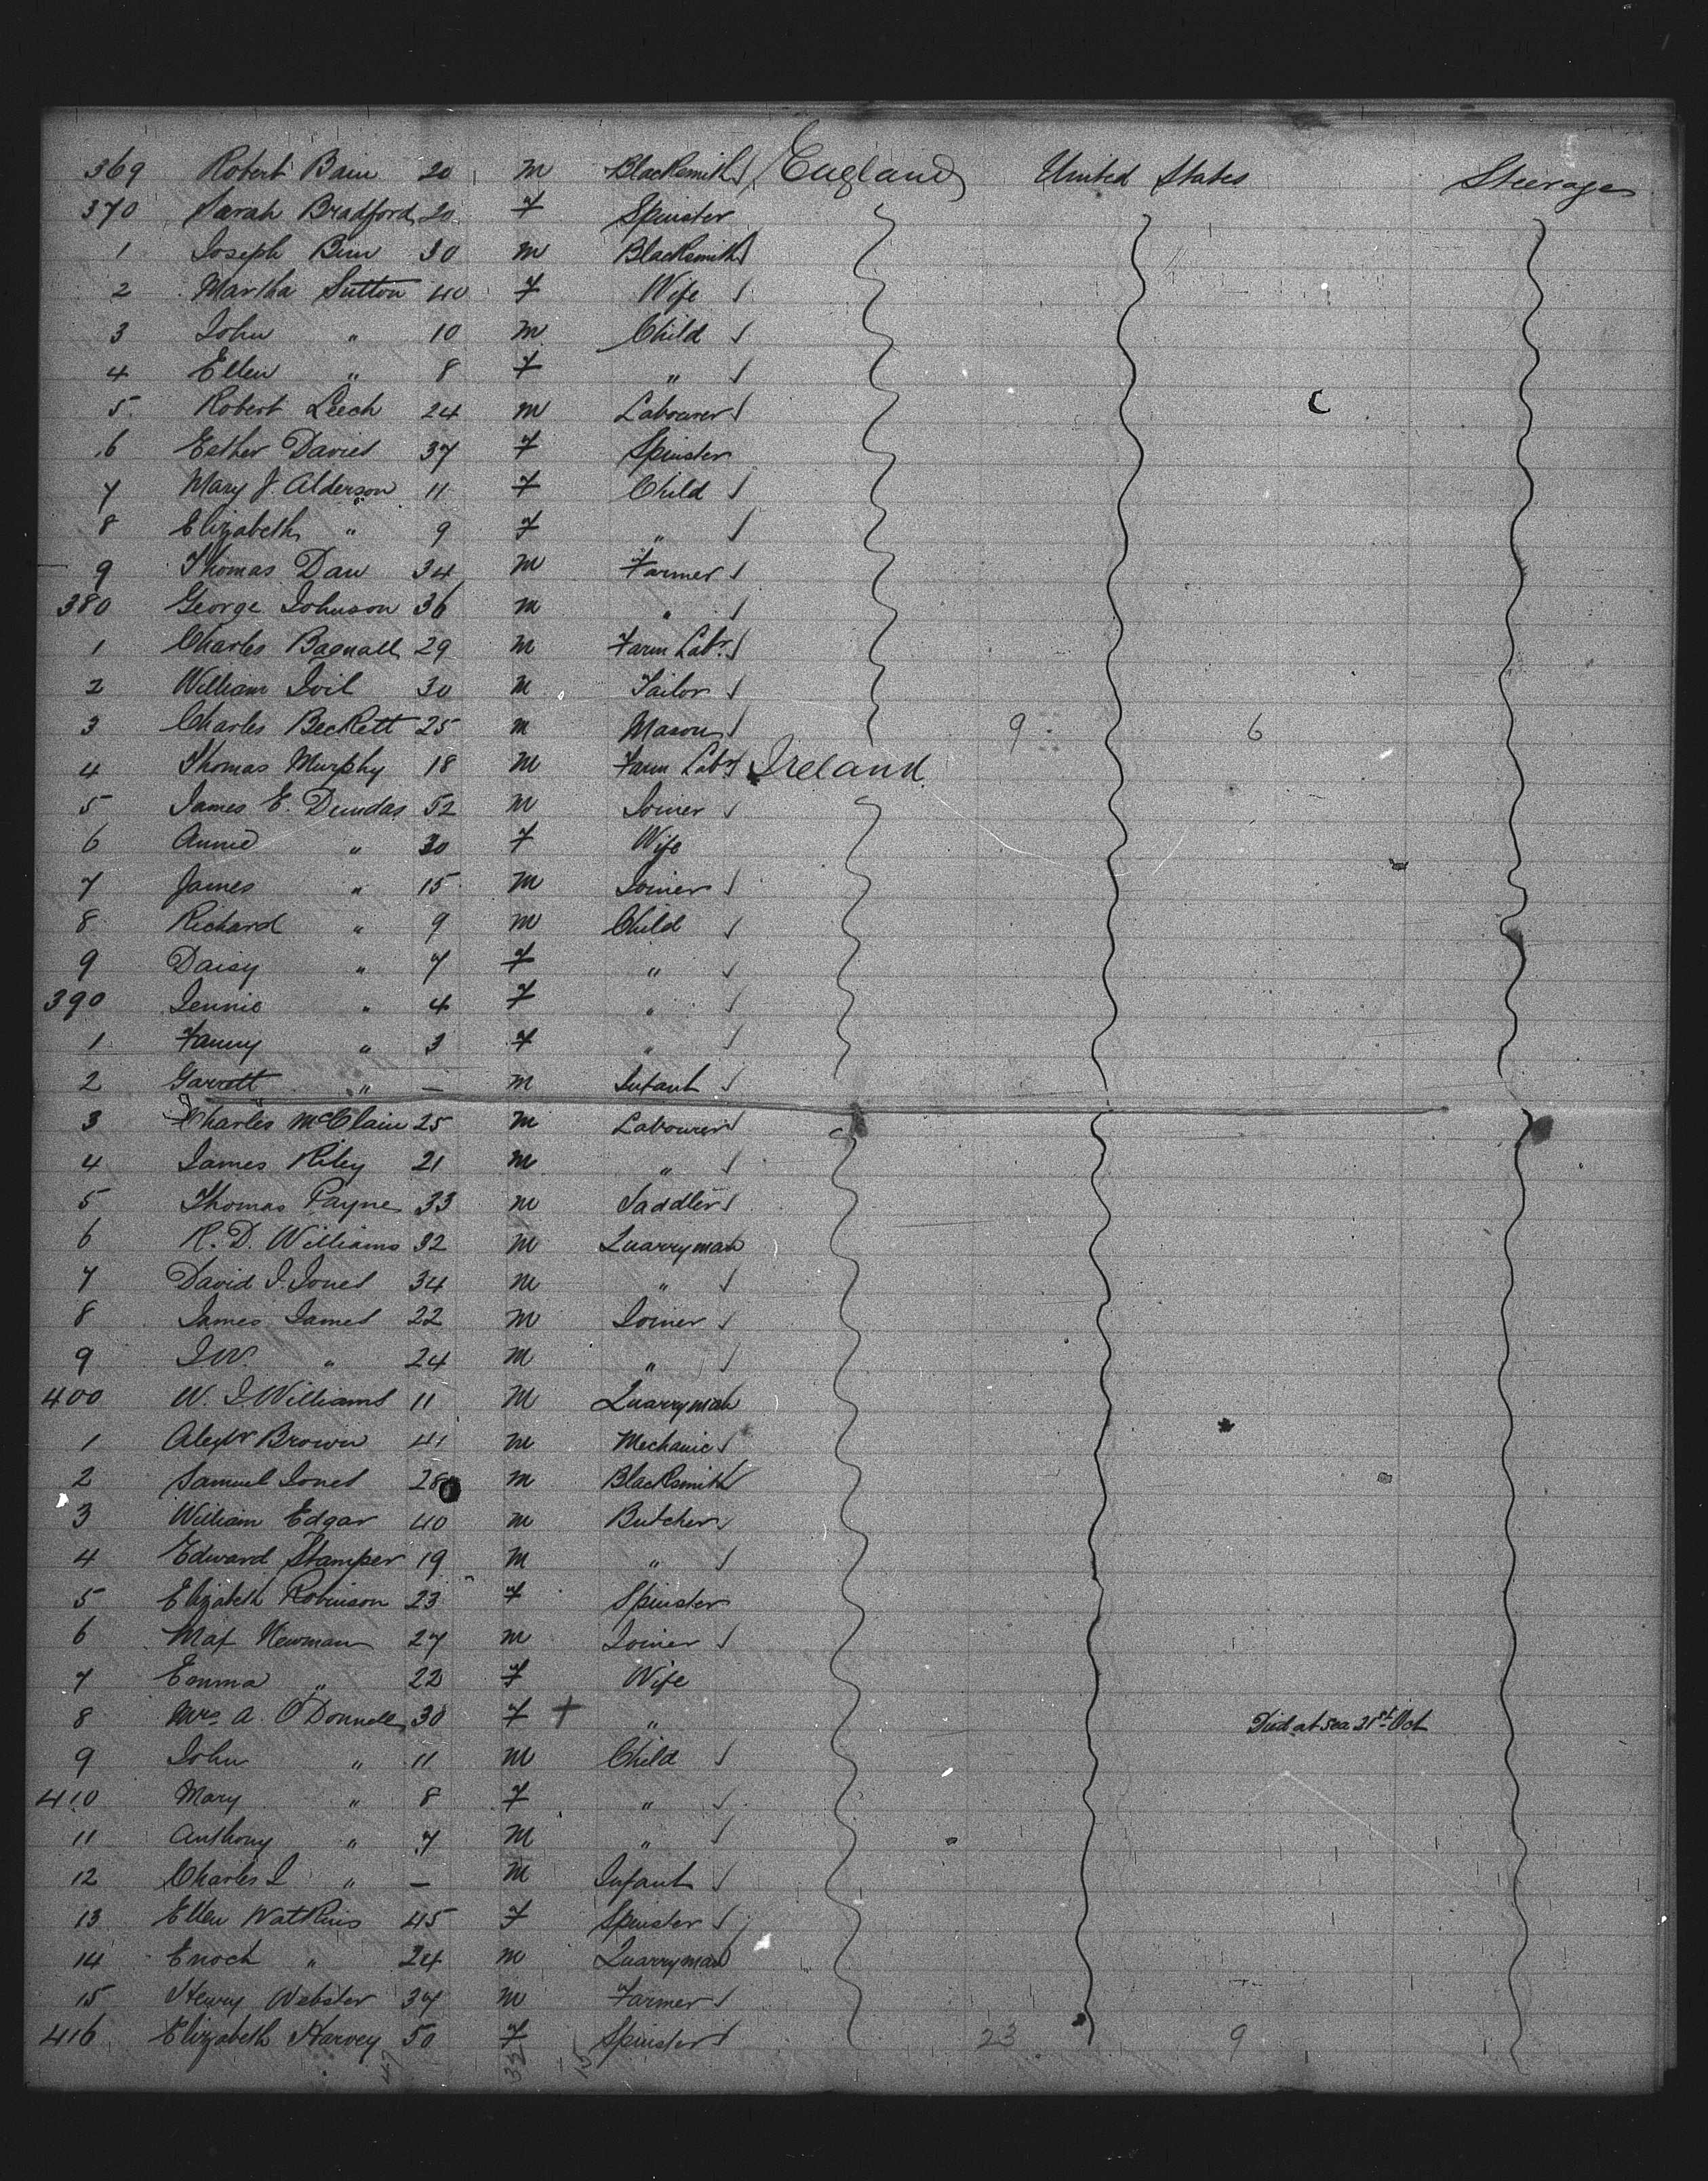 369 Robert Bain 20 m Blacksmith England United States Steerage
370 Sarah Bradford 20 F Spinster
1 Joseph Binn 30 m Blacksmith
2 Martha Sutton 40 F Wife
3 John " 10 m Child
4 Ellen " 8 F "
5 Robert Leech 24 m Labourer
6 Esther Davies 37 F Spinster
7 Mary J. Alderson 11 F Child
8 Elizabeth " 9 F "
9 Thomas Daw 34 m Farmer
380 George Johnson 36 m "
1 Charles Bagnall 29 m Farm Labr.
2 William 30 m Tailor
3 Charles Beckett 25 m Mason 9 6
4 Thomas Murphy 18 m Farm Labr Ireland
5 James E. Dundas 52 m Joiner
6 Annie " 30 F Wife
7 James " 15 m Joiner
8 Richard " 9 m Child
9 Daisy " 7 F "
390 Jennie " 4 F "
1 Fanny " 3 F "
2 Garrett " — m Infant
3 Charles McClain 25 m Labourer
4 James Riley 21 m "
5 Thomas Payne 33 m Saddler
6 R. D. Williams 32 m Quarryman
7 David J. Jones 34 m "
8 James James 22 m Joiner
9 J.W. " 24 m "
400 W. J Williams 11 m Quarryman
1 Alexr Brown 41 m Mechanic
2 Samuel Jones 28 m Blacksmith
3 William Edgar 40 m Butcher
4 Edward Stamper 19 m "
5 Elizabeth Robinson 23 F Spinster
6 Max Newman 27 m Joiner
7 Emma " 22 F Wife
8 Mrs A. O'Donnell 30 F + " Died at sea 21st Oct
9 John " 11 m Child
410 Mary " 8 F "
11 Anthony " 7 m "
12 Charles J " — m Infant
13 Ellen Watkins 45 F Spinster
14 Enoch " 24 m Quarryman
15 Henry Webster 37 m Farmer
416 Elizabeth Harvey 50 F Spinster 23 9
47 32 15